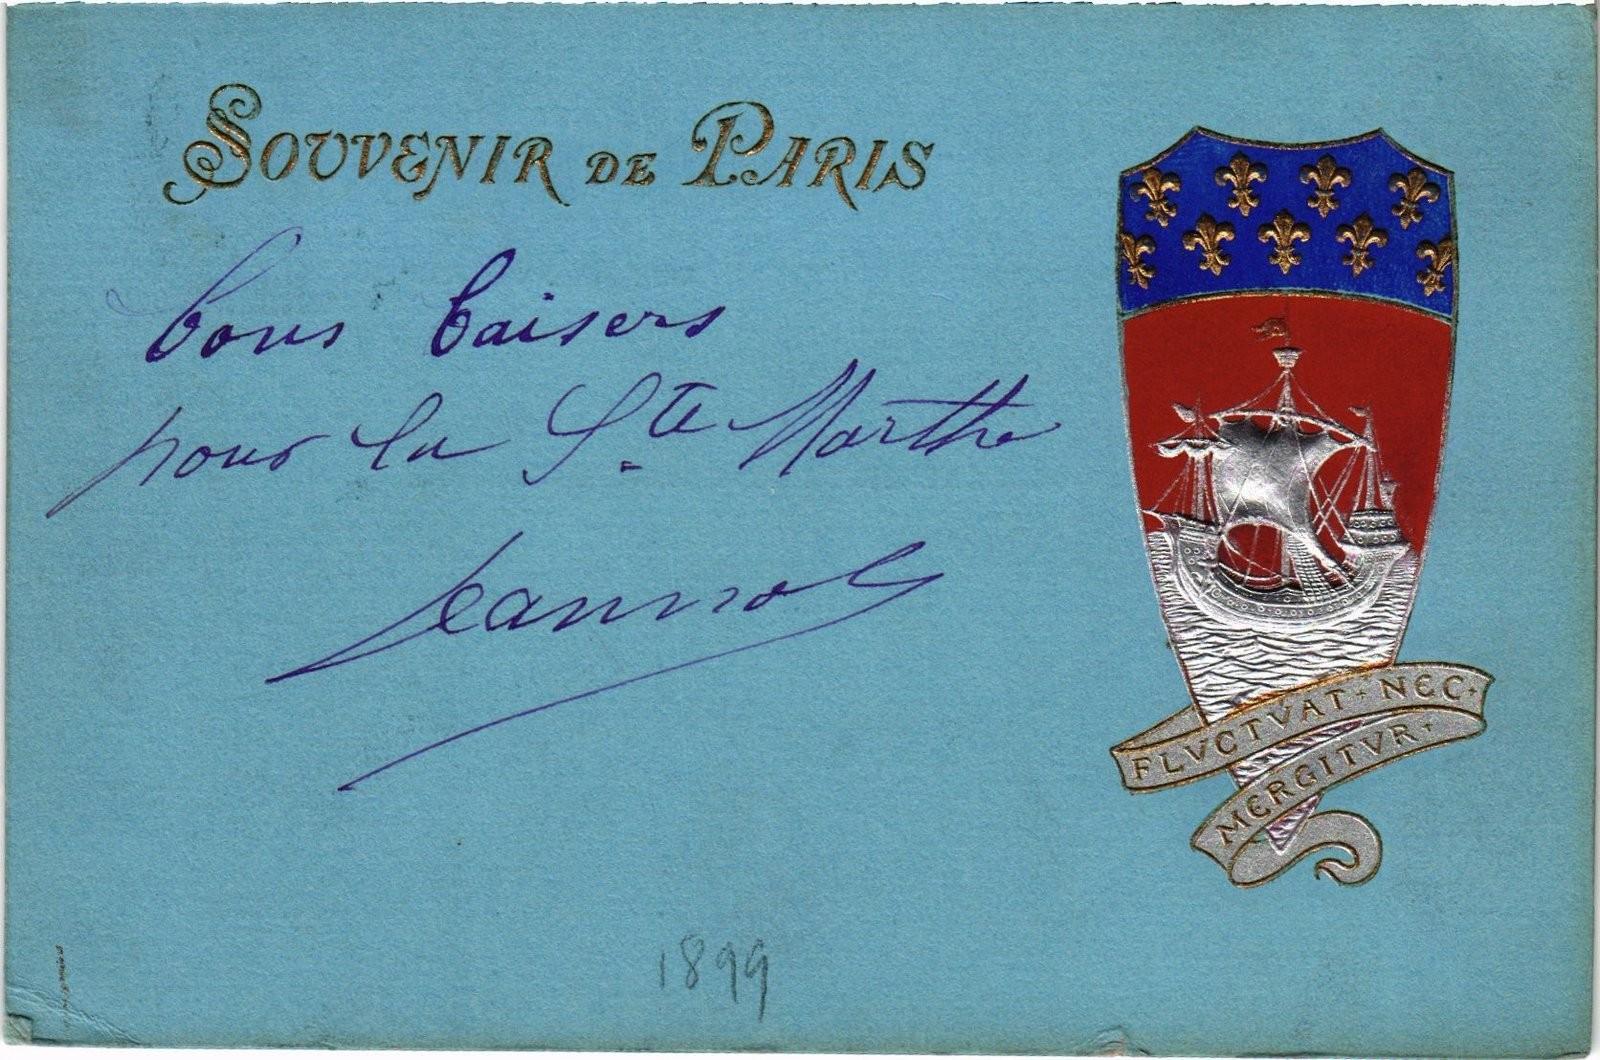 SOUVENIR DE PARIS
bons baisers
pour la Ste Marthe
Jeannot
FLVCTVAT NEC
MERGITVR
1899